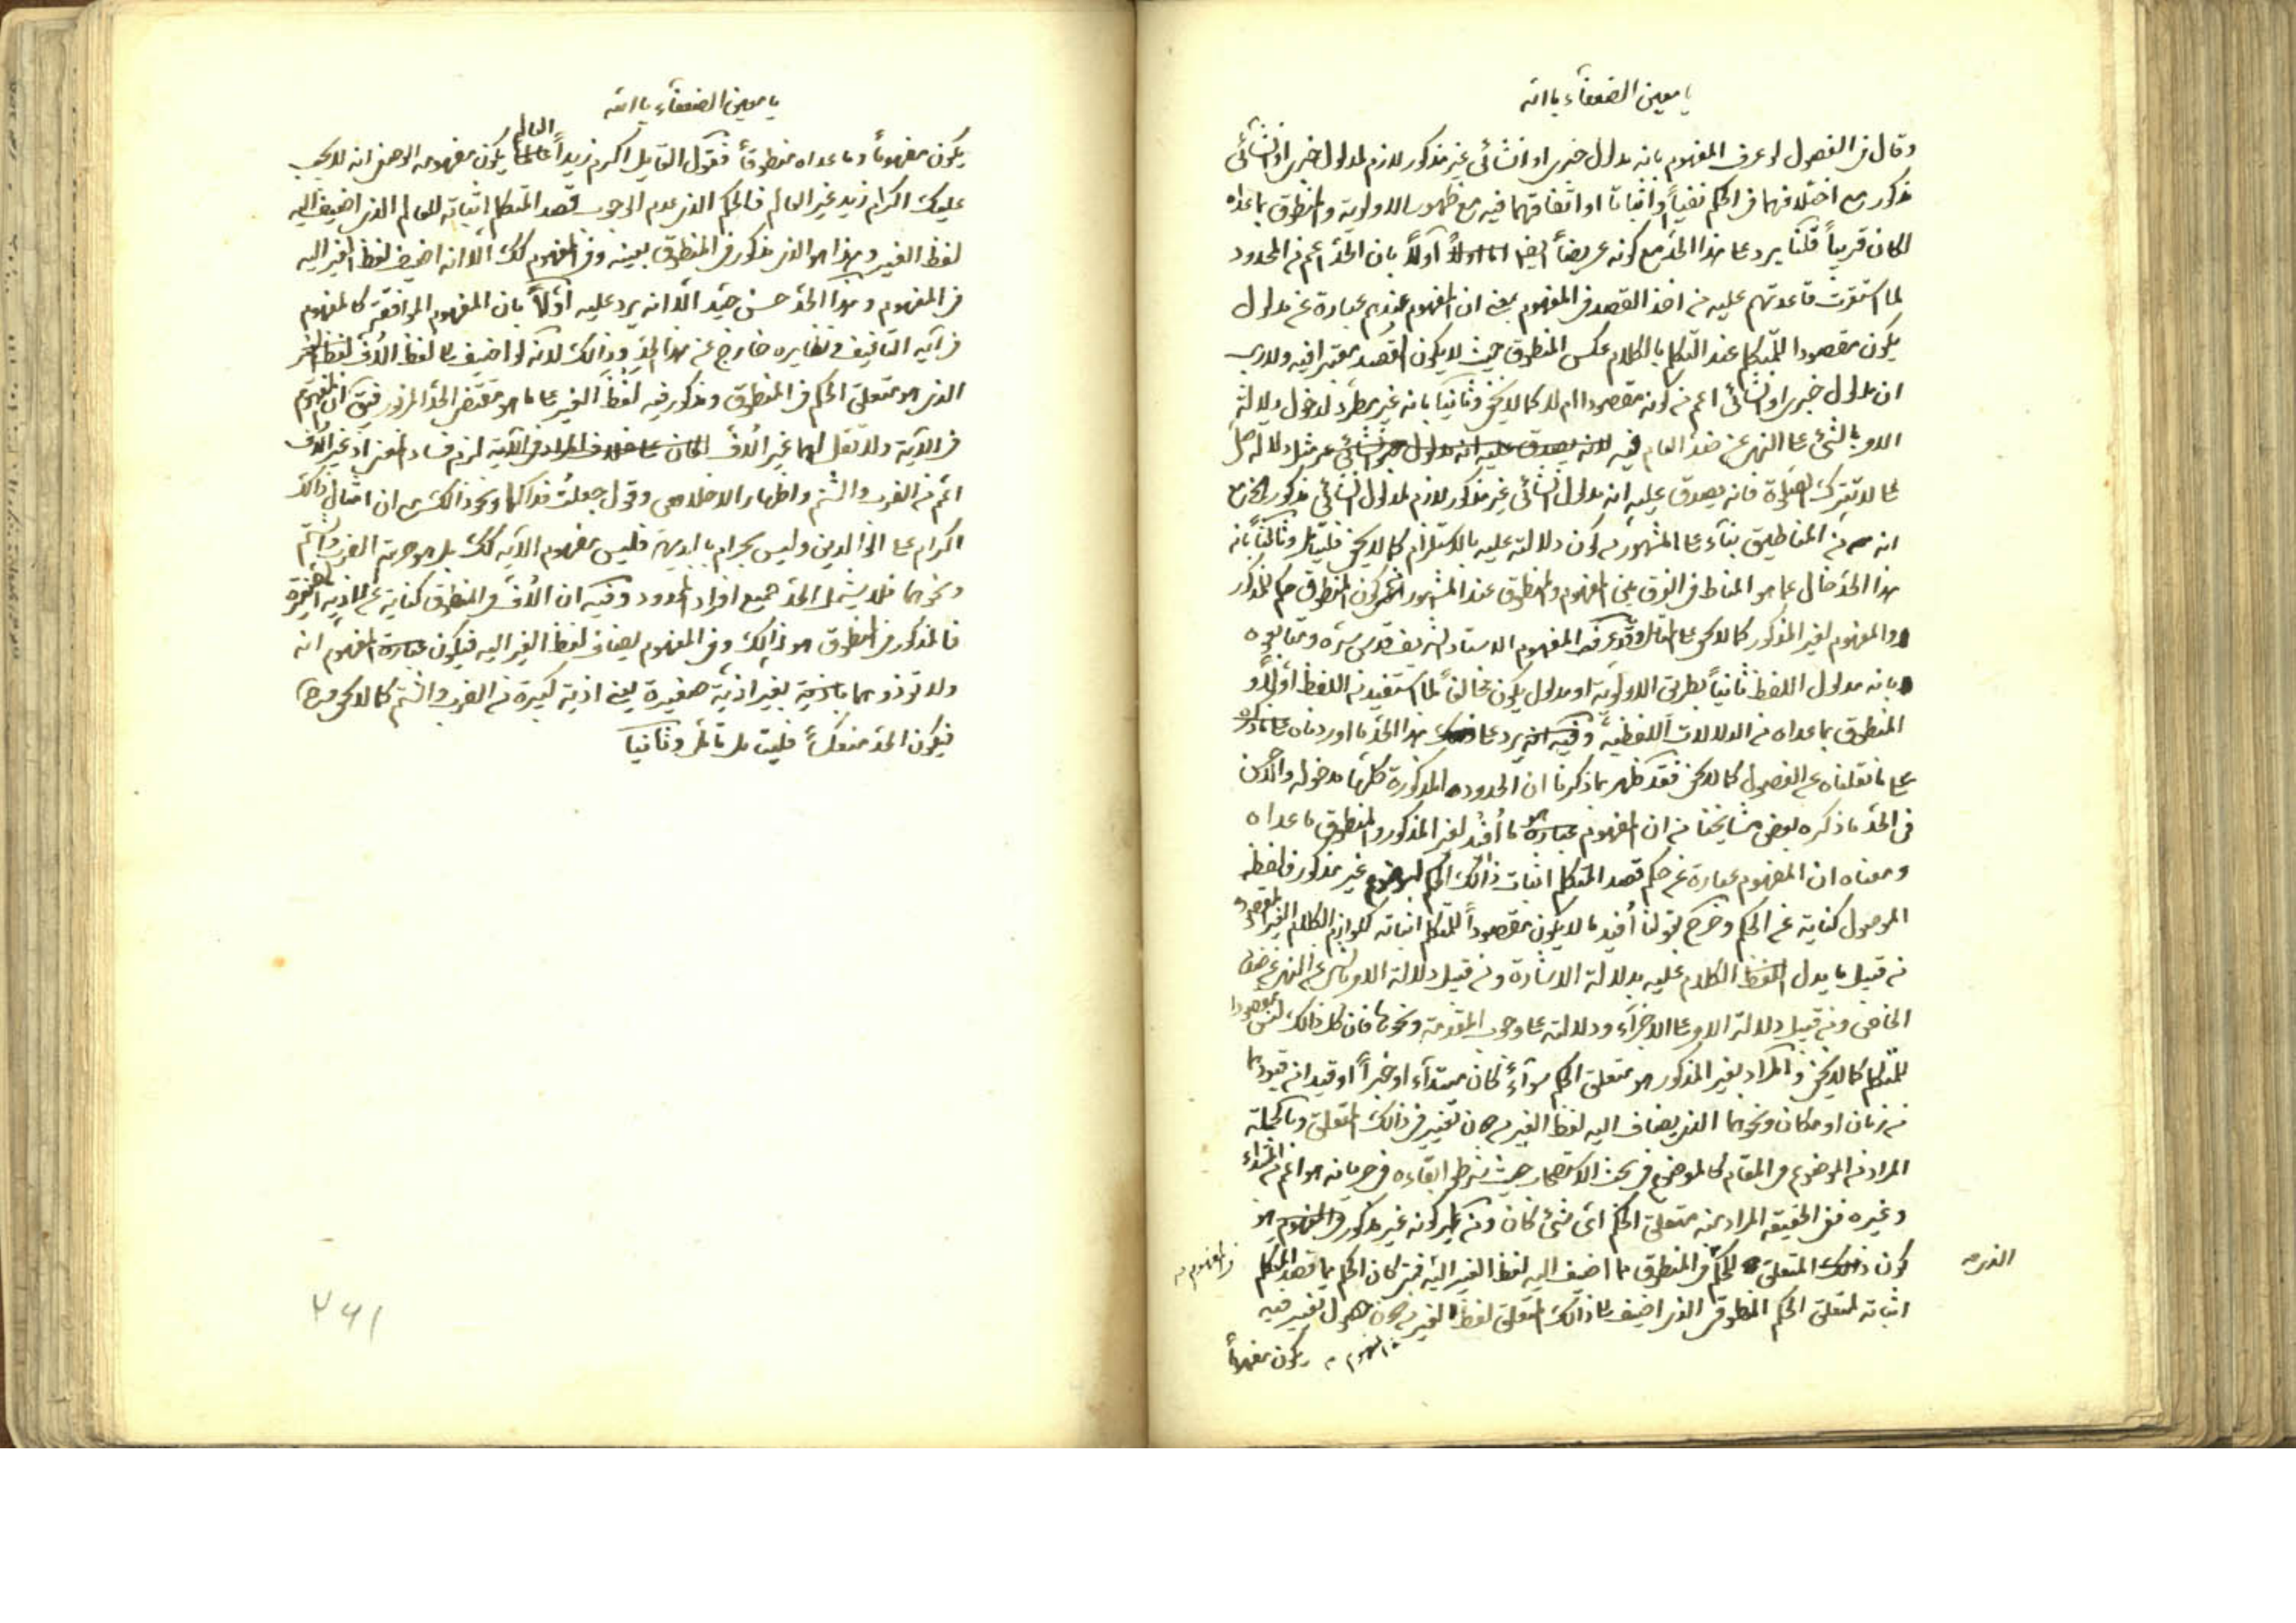 يا معين الضعفاء يا الله
وقال في الفصول لو عرف المفهوم بانه مدلول خبري او انشائي غير مذكور لازم لمدلول خبري او انشائي
مذكور مع اختلافهما في الحكم نفياً واثباتا او اتفاقهما فيه مع ظهور الاولوية والمنطوق بما عداه
لكان قريباً قلنا يرد على هذا الحد مع كونه عريضاً اولاً بان الحد اعم من المحدود
لما استقرت قاعدتهم عليه من اخذ القصد في المفهوم بمعنى ان المفهوم عندهم عبارة عن مدلول
يكون مقصودا للمتكلم عند التكلم بالكلام عكس المنطوق حيث لا يكون القصد معتبرا فيه ولا ريب
ان مدلول خبري او انشائي اعم من كونه مقصودا ام لا كما لا يخفى وثانيا بانه غير مطرد لدخول دلالة
الامر بالشئ على النهي عن ضد العام فيه لانه يصدق عليه انه مدلول انشائي مثل دلالة صل
على لا تترك الصلوة فانه يصدق عليه انه مدلول انشائي غير مذكور لازم لمدلول انشائي مذكور مع
انه من المناطيق بناء على المشهور من كون دلالته عليه بالاستلزام كما لا يخفى فليتامل وثالثاً بانه
هذا الحد خال عما هو المناط في الفرق بين المفهوم والمنطوق عند المشهور من كون المنطوق حكم للمذكور
والمفهوم لغير المذكور كما لا يخفى على المتامل وقد عرف المفهوم الاستاد الشريف قدس سره ومتابعوه
بانه مدلول اللفظ ثانياً بطريق الاولوية او مدلول يكون مخالفاً لما استفيد من اللفظ أولاً و
المنطوق بما عداه من الدلالات اللفظية وفيه انه يرد على هذا الحد ما اوردناه على ما ذكره
على ما نقلناه عن الفصول كما لا يخفى فقد ظهر بما ذكرنا ان الحدود المذكورة كلها مدخولة والاحسن
في الحد ما ذكره بعض مشايخنا من ان المفهوم عبارة ما أفيد لغير المذكور والمنطوق ما عداه
ومعناه ان المفهوم عبارة عن حكم قصد المتكلم اثبات ذالك الحكم لموضوع غير مذكور فلفظة
الموصول كناية عن الحكم وخرج بقولنا أفيد ما لا يكون مقصوداً للمتكلم اثباته كلوازم الكلام الغير المقصود
من قبيل ما يدل اللفظ الكلام عليه بدلالة الاشارة ومن قبيل دلالة الامر بالشئ على النهي عن ضده
الخاص ومن قبيل دلالة الامر على الاجزاء ودلالته على وجوب المقدمة ونحوها فان كل ذالك ليس مقصودا
للمتكلم كما لا يخفى والمراد بغير المذكور هو متعلق الحكم سواء كان مبتداء او خبراً او قيدا من قيودهما
من زمان او مكان ونحوهما الذي يضاف اليه لفظ الغير من دون تغيير في ذالك المتعلق وبالجملة
المراد من الموضوع في المقام كالموضوع في بحث الاستصحاب حيث شرطوا بقاءه في جريانه هو اعم من المبتداء
وغيره ففي الحقيقة المراد منه متعلق الحكم اي شئ كان ومن كونه غير مذكور في المفهوم هو
كون ذلك المتعلق للحكم في المنطوق مما اضيف اليه لفظ الغير اليه فمتى كان الحكم مما قصد المتكلم
الذي
في المفهوم
اثباته لمتعلق الحكم المنطوق الذي اضيف الى ذالك المتعلق لفظ الغير من دون حصول تغيير فيه
في المفهوم يكون مفهوماً
يا معين الضعفاء يا الله
يكون مفهوماً وما عداه منطوقاً فقول القايل اكرم زيداً العالم يكون مفهومه الوصفي انه لا يجب
عليك اكرام زيد غير العالم فالحكم الذي عدم الوجوب قصد المتكلم اثباته للعالم الذي اضيف اليه
لفظ الغير وهذا هو الذي مذكور في المنطوق بعينه وفي المفهوم كك الا انه اضيف لفظ الغير اليه
في المفهوم وهذا الحد حسن جيد الا انه يرد عليه أولاً بان المفهوم الموافقة كالمفهوم
في آية التافيف ونظايره خارج عن هذا الحد وذالك لانه لو اضيف الى لفظ الاف لفظ الغير
الذي هو متعلق الحكم في المنطوق ومذكور فيه لفظ الغير على ما هو مقتضى الحد المزبور فيق ان المفهوم
في الآية ولا تقل لهما غير الاف لكان على خلاف المراد في الآية لزم فساد المعنى اذ غير الاف
اعم من الضرب والشتم واظهار الاخلاص وقول جعلت فداكما ونحو ذالك مع ان امثال ذالك
اكرام على الوالدين وليس بحرام بالبديهة فليس مفهوم الآية كك بل هو حرمة الضرب والشتم
ونحوهما فلا يشمل الحد جميع افراد المحدود وفيه ان الاف في المنطوق كناية عن الاذية الصغيرة
فالمذكور في المنطوق هو ذالك وفي المفهوم يضاف لفظ الغير اليه فيكون عبارة المفهوم انه
ولا توذوهما باذية بغير اذية صغيرة يعني اذية كبيرة من الضرب والشتم كما لا يخفى
فيكون الحد منعكساً فليتامل تامل وثانيا